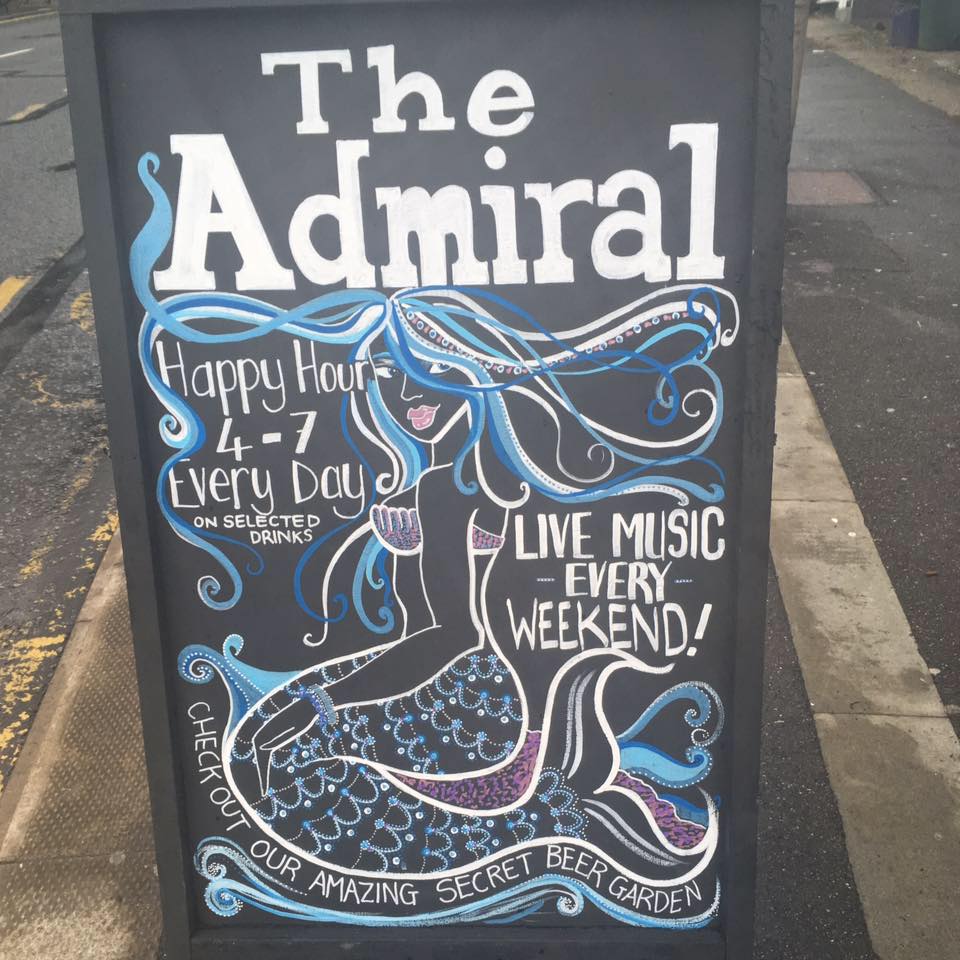 The
Admiral
Happy Hour
4-7
Every Day
ON SELECTED
DRINKS
LIVE MUSIC
EVERY
WEEKEND!
CHECK OUT OUR AMAZING SECRET BEER GARDEN